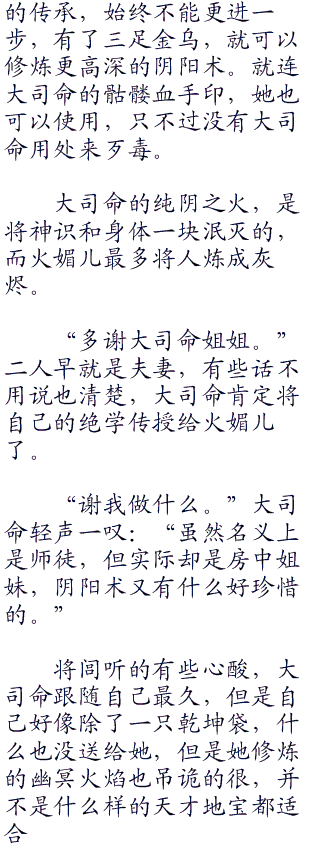 的传承，始终不能更进一
步，有了三足金乌，就可以
修炼更高深的阴阳术。就连
大司命的骷髅血手印，她也
可以使用，只不过没有大司
命用处来歹毒。
大司命的纯阴之火，是
将神识和身体一块泯灭的，
而火媚儿最多将人炼成灰
烬。
“多谢大司命姐姐。”
二人早就是夫妻，有些话不
用说也清楚，大司命肯定将
自己的绝学传授给火媚儿
了。
“谢我做什么。”大司
命轻声一叹：“虽然名义上
是师徒，但实际却是房中姐
妹，阴阳术又有什么好珍惜
的。”
将闾听的有些心酸，大
司命跟随自己最久，但是自
己好像除了一只乾坤袋，什
么也没送给她，但是她修炼
的幽冥火焰也吊诡的很，并
不是什么样的天才地宝都适
合